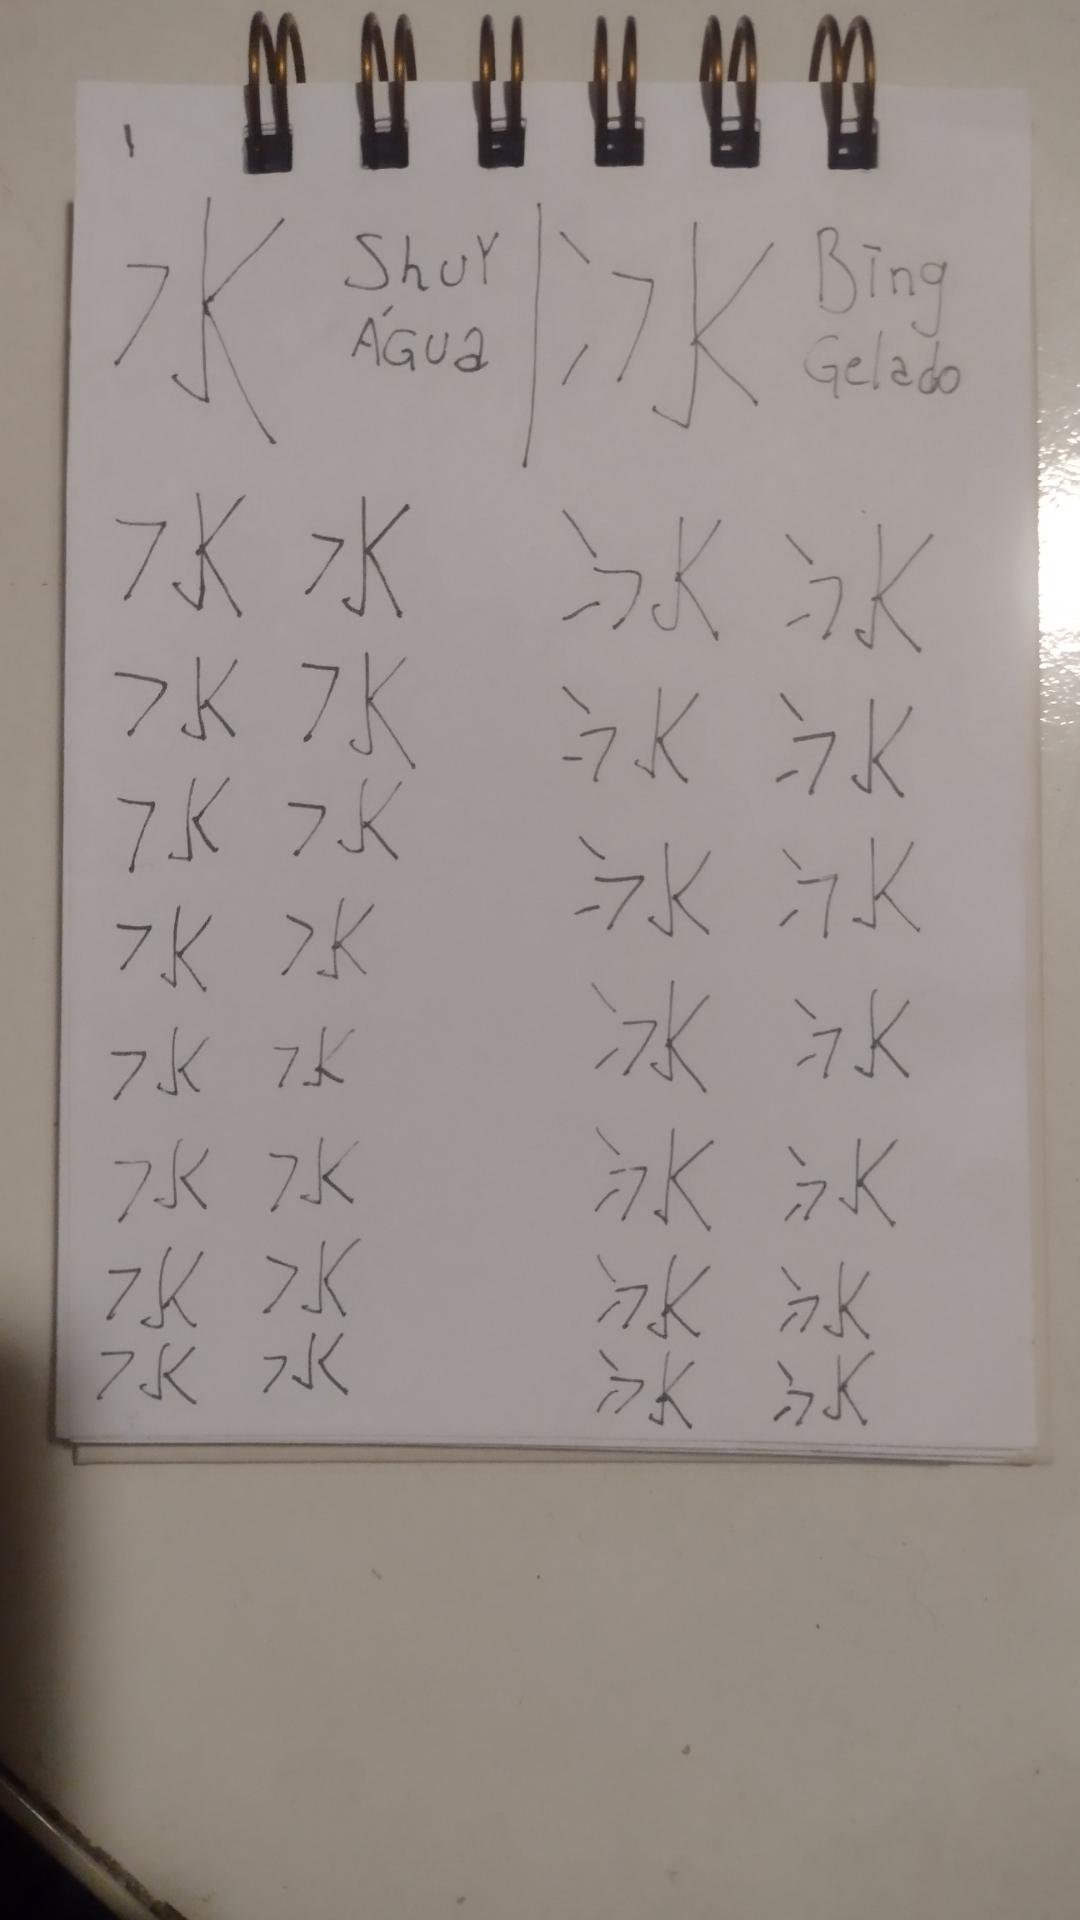 1
水 Shuy Água | 冰 Bīng Gelado
水 水 冰 冰
水 水 冰 冰
水 水 冰 冰
水 水 冰 冰
水 水 冰 冰
水 水 冰 冰
水 水 冰 冰
水 水 冰 冰